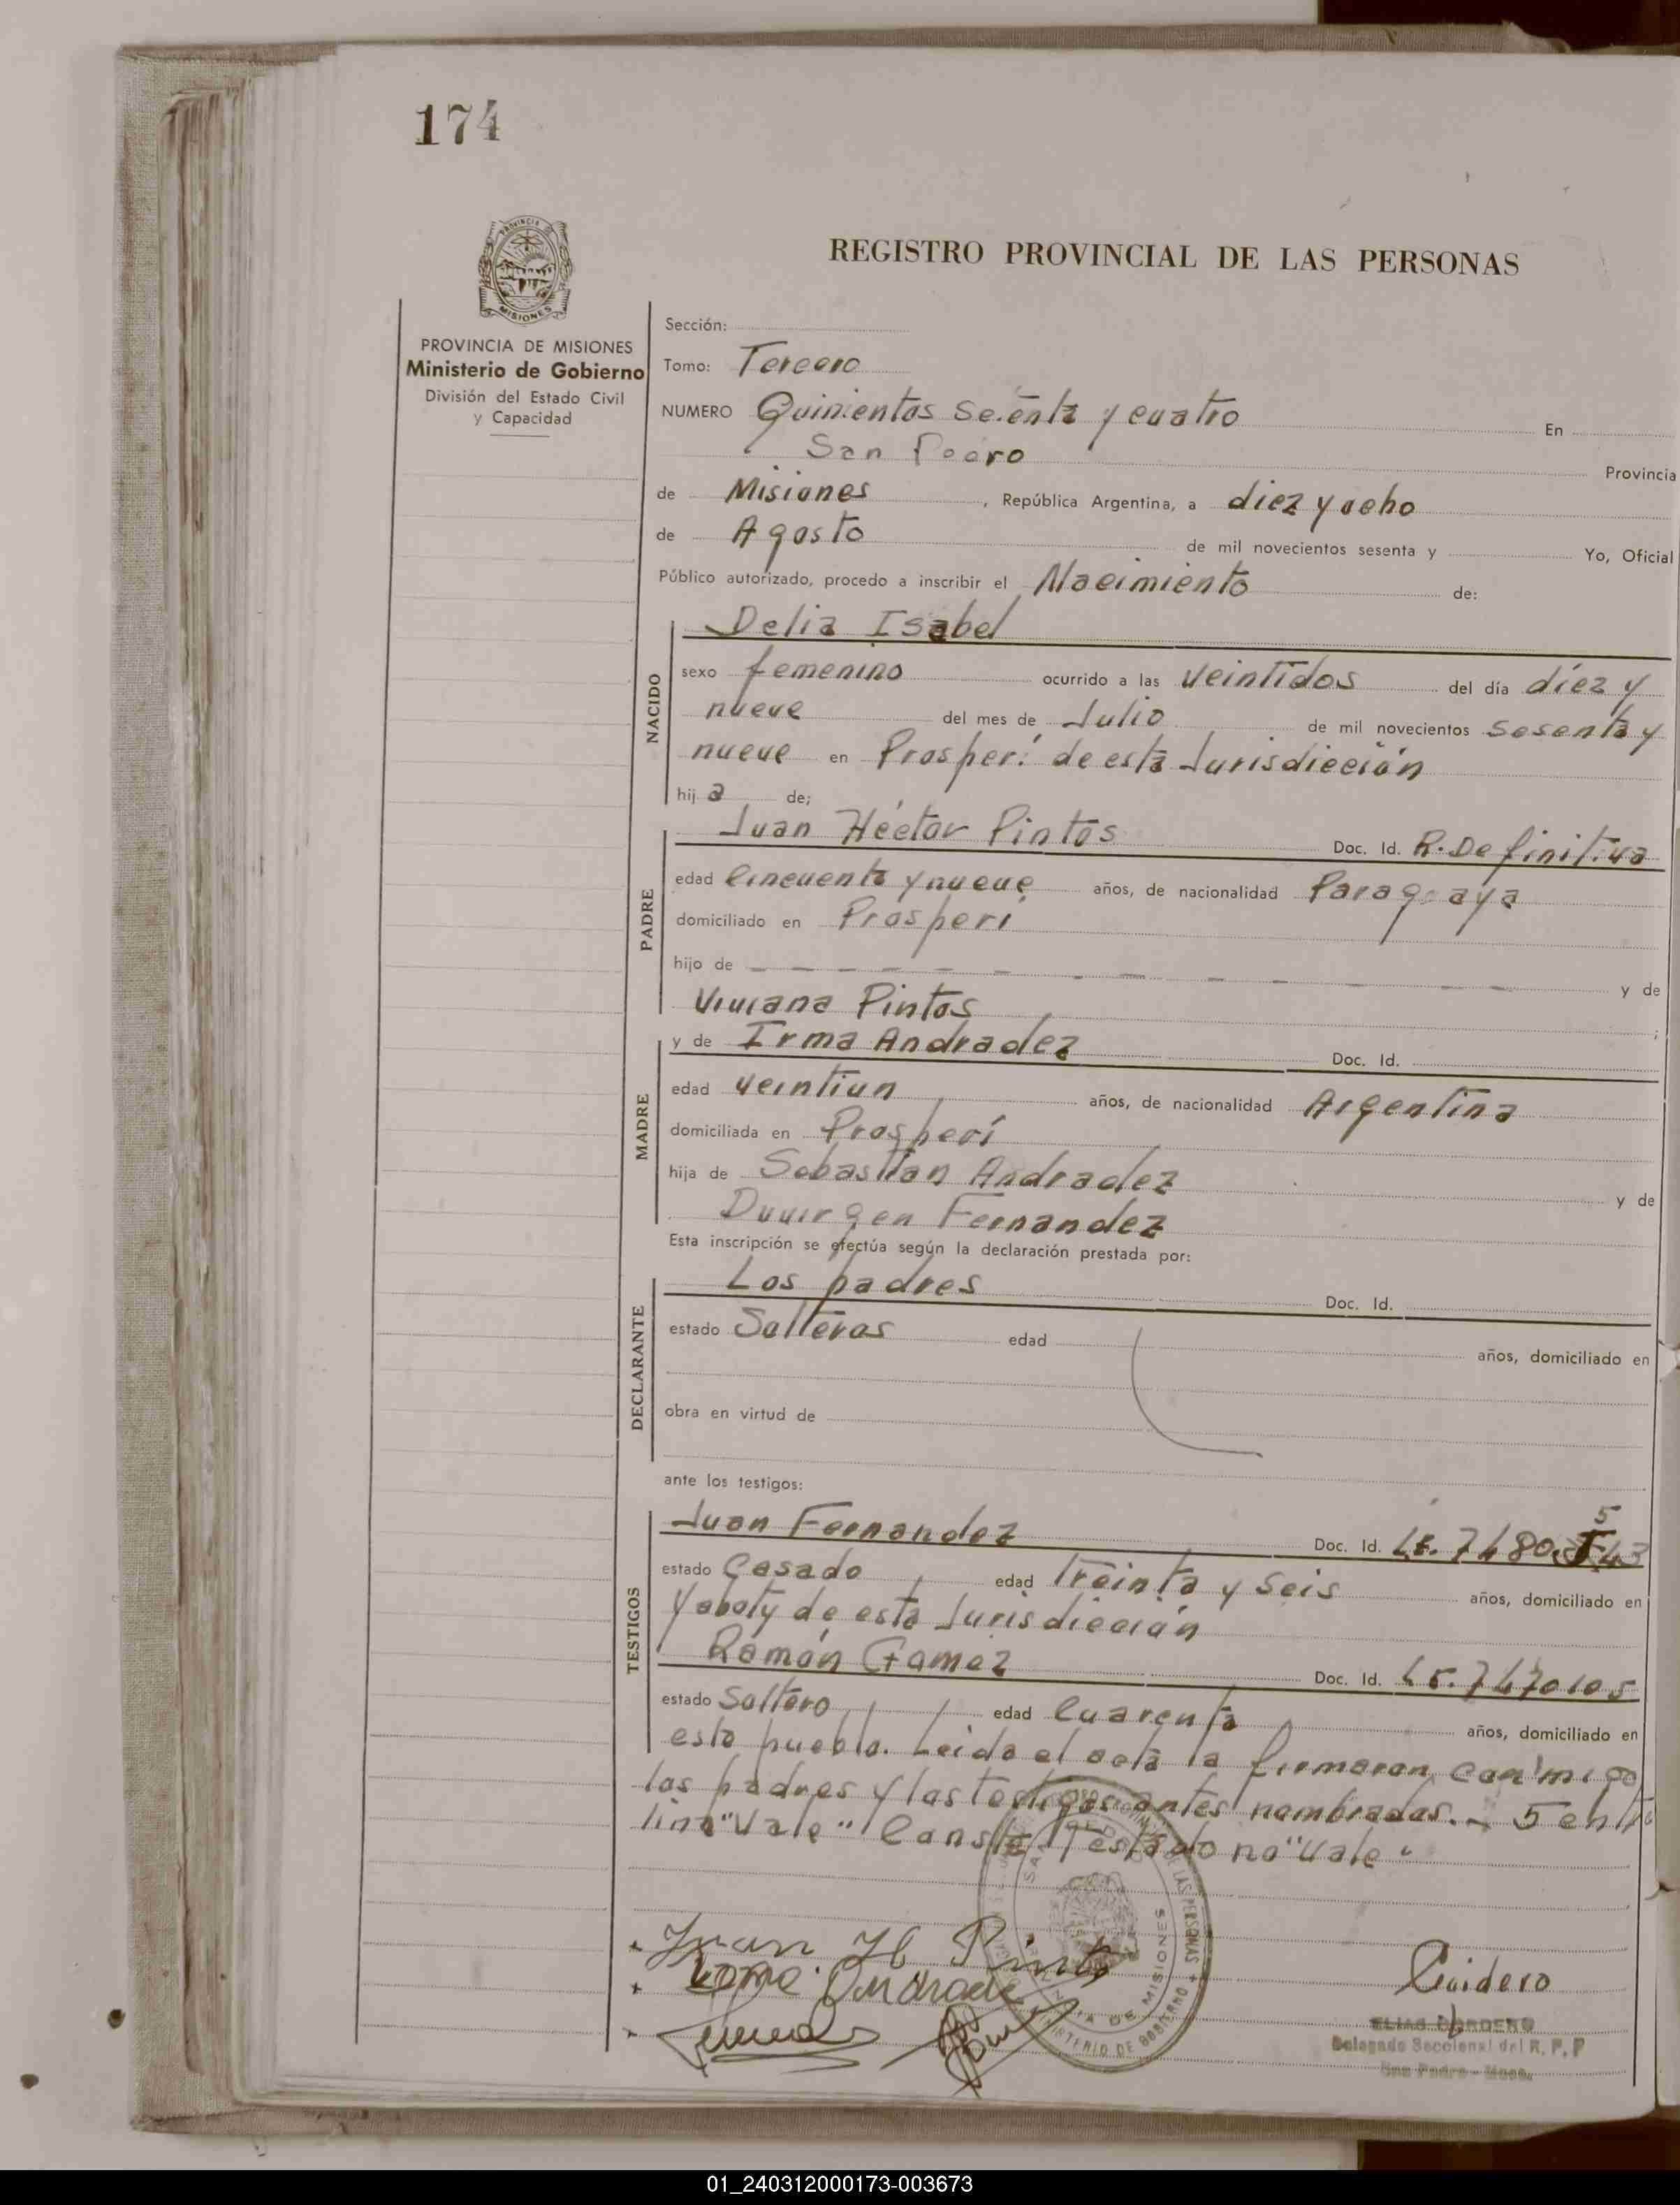 174
PROVINCIA DE MISIONES
Ministerio de Gobierno
División del Estado Civil
y Capacidad
REGISTRO PROVINCIAL DE LAS PERSONAS
Sección:
Tomo: Tercero
NUMERO Quinientos setenta y cuatro En
San Pedro Provincia
de Misiones, República Argentina, a diez y ocho
de Agosto de mil novecientos sesenta y Yo, Oficial
Público autorizado, procedo a inscribir el Nacimiento de:
NACIDO
Delia Isabel
sexo femenino ocurrido a las veintidos del día diez y
nueve del mes de Julio de mil novecientos sesenta y
nueve en Prosperí de esta Jurisdicción
hij a de;
PADRE
Juan Héctor Pintos Doc. Id. R. Definitiva
edad cincuenta y nueve años, de nacionalidad Paraguaya
domiciliado en Prosperí
hijo de — — — — — — — — — — y de
Viviana Pintos ;
MADRE
y de Irma Andradez Doc. Id.
edad veintiun años, de nacionalidad Argentina
domiciliada en Prosperí
hija de Sebastian Andradez y de
Duvirgen Fernandez
Esta inscripción se efectúa según la declaración prestada por:
DECLARANTE
Los padres Doc. Id.
estado Solteros edad años, domiciliado en
obra en virtud de
ante los testigos:
TESTIGOS
Juan Fernandez Doc. Id. LE. 7480.543
estado Casado edad treinta y seis años, domiciliado en
Yaboty de esta Jurisdicción
Ramón Gamez Doc. Id. LE. 7470105
estado Soltero edad cuarenta años, domiciliado en
este pueblo. Leida el acta la firmaron conmigo
los padres y los testigos antes nombrados.- 5 ent
lina "Vale" Conste Testado no "Vale"
Juan H Pinto
Irma Andrade
Coidero
ELIAS CORDERO
Delegado Seccional del R. P. P
San Pedro - Mnes.
01_240312000173-003673